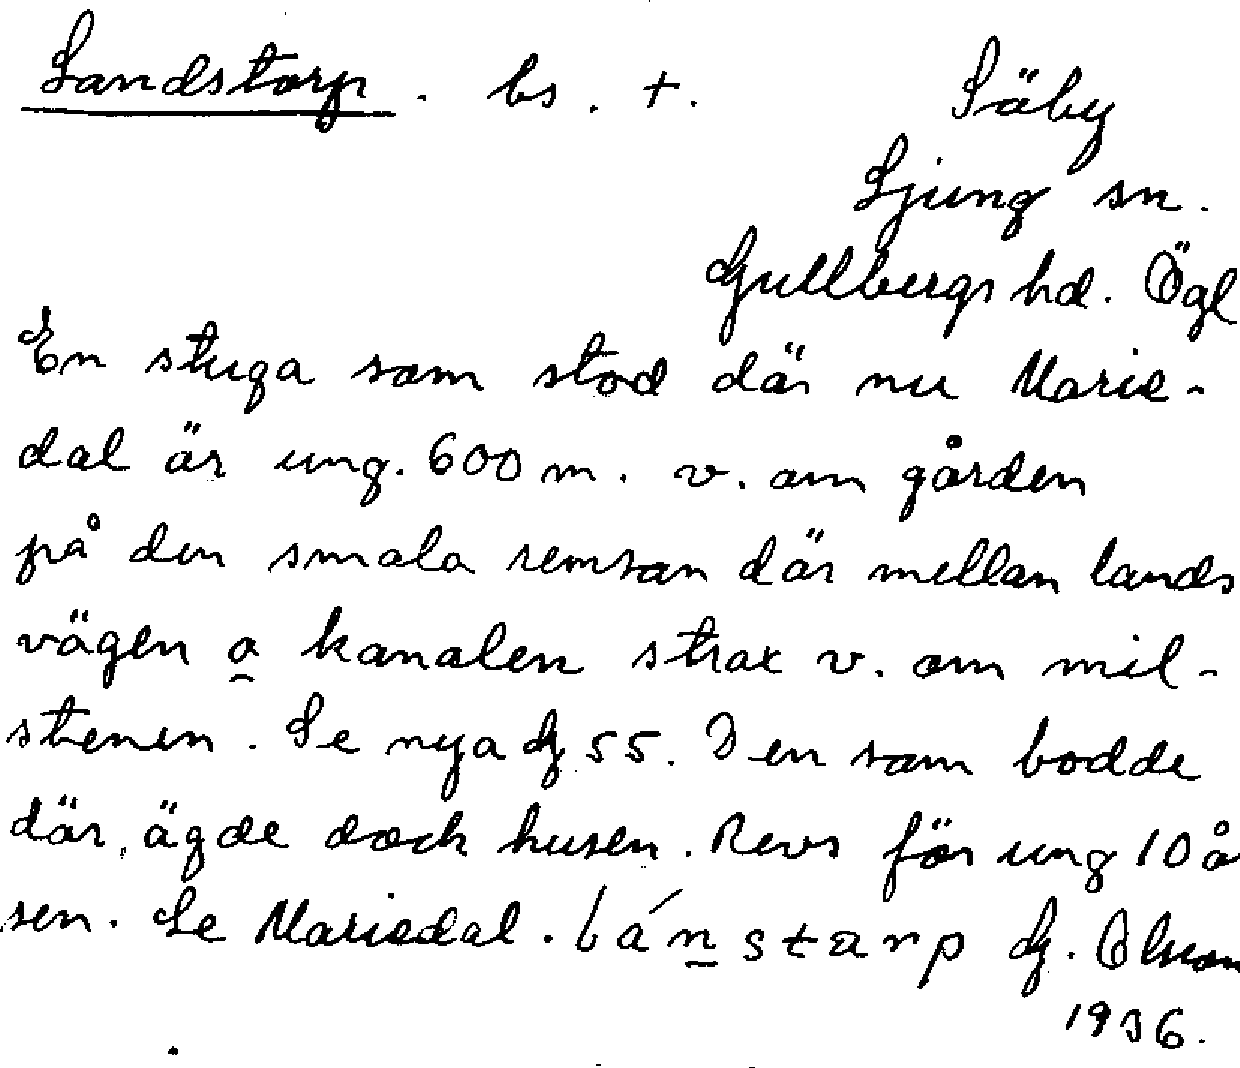 Landstorp. bs. +. Säby
Ljung sn.
Gullbergs hd. Ögl
En stuga som stod där nu Marie-
dal är ung. 600 m. v. om gården
på den smala remsan där mellan lands
vägen o kanalen strax v. om mil-
stenen. Se nya G 55. Den som bodde
där, ägde dock husen. Revs för ung 10 å
sen. Se Mariedal. lánstarp G. Olsson
1936.